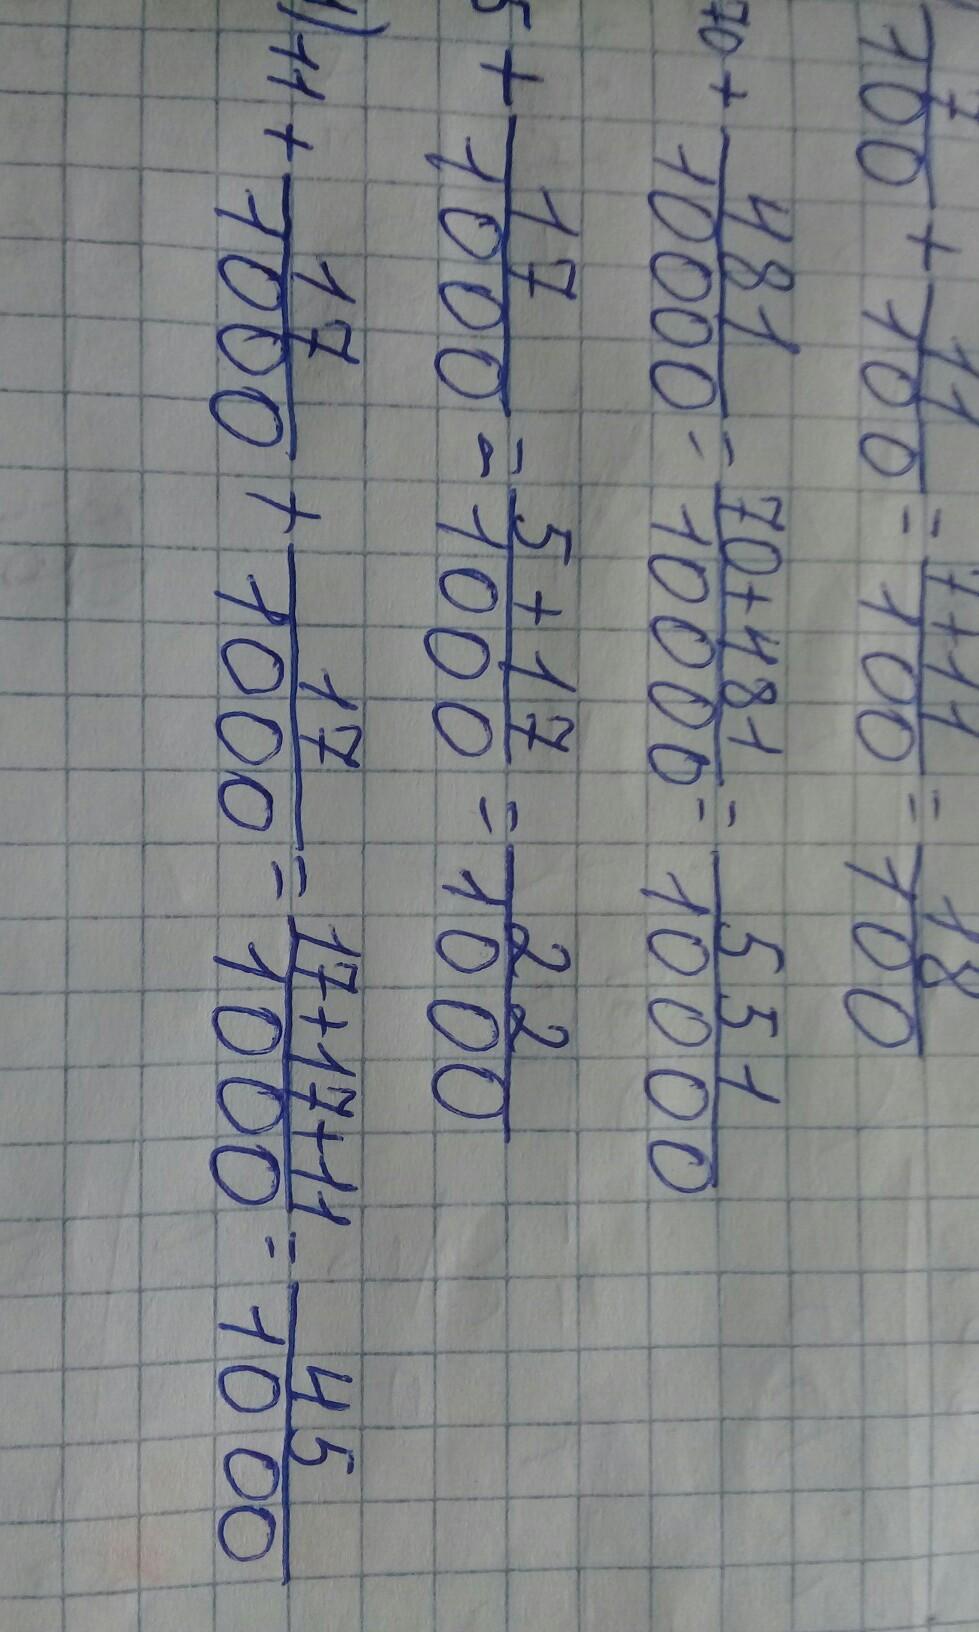 7/100 + 11/100 = 7+11/100 = 18/100
70 + 481/10000 = 70+481/10000 = 551/10000
5 + 17/1000 = 5+17/1000 = 22/1000
) 11 + 17/1000 + 17/1000 = 17+17+11/1000 = 45/1000